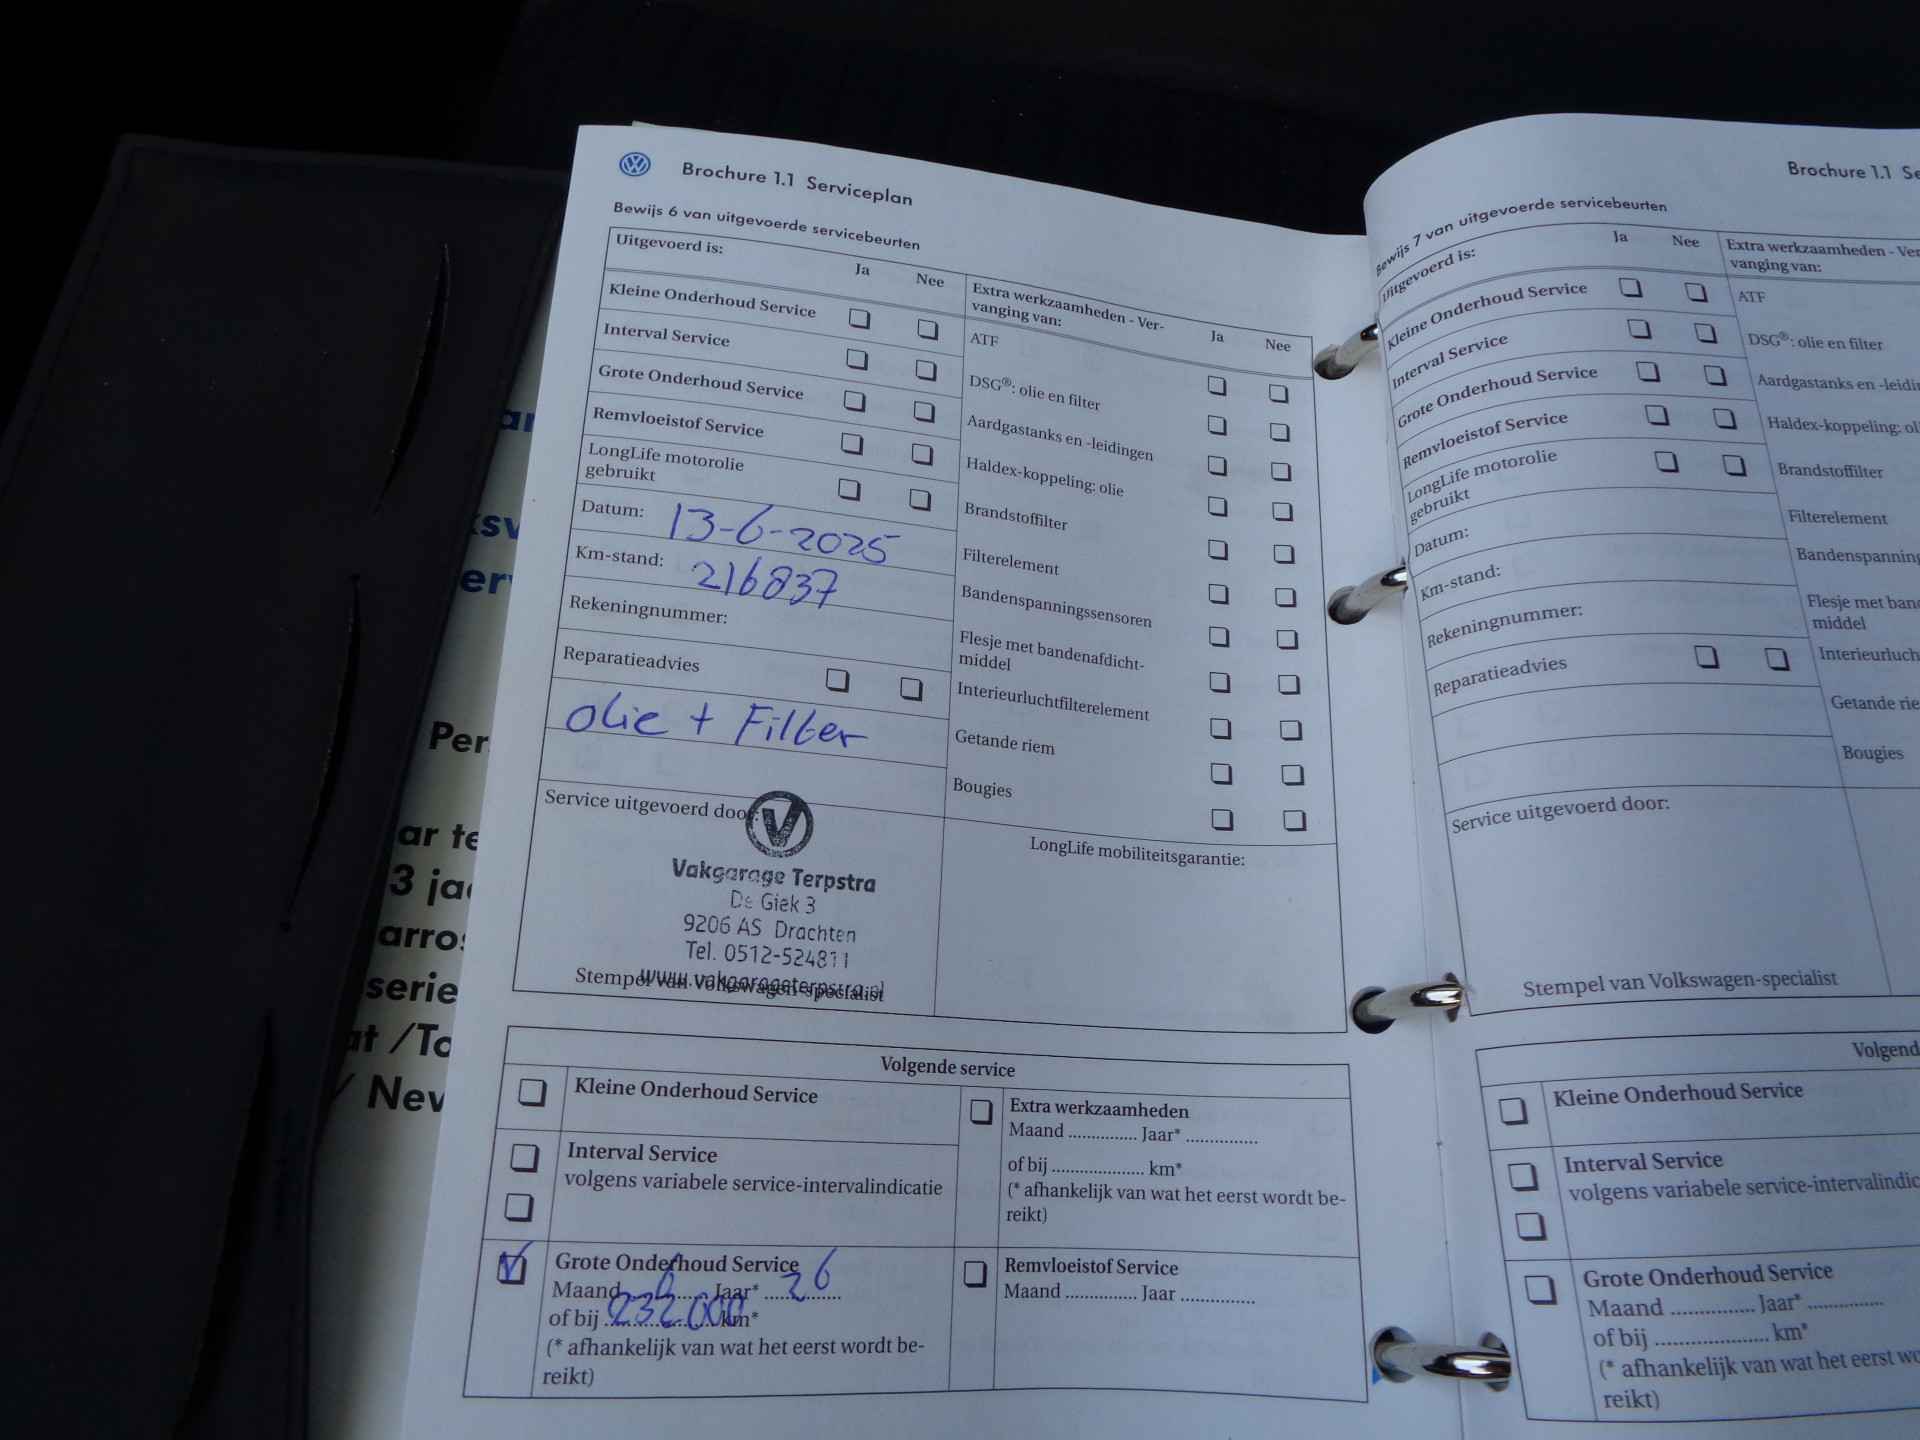 Brochure 1.1 Serviceplan
Bewijs 6 van uitgevoerde servicebeurten
Uitgevoerd is:
Ja Nee
Kleine Onderhoud Service
Interval Service
Grote Onderhoud Service
Remvloeistof Service
LongLife motorolie
gebruikt
Datum: 13-6-2025
Km-stand: 216837
Rekeningnummer:
Reparatieadvies
Olie + Filter
Service uitgevoerd door:
Vakgarage Terpstra
De Giek 3
9206 AS Drachten
Tel. 0512-524811
www.vakgarageterpstra.nl
Stempel van Volkswagen-specialist
Extra werkzaamheden - Ver-
vanging van:
Ja Nee
ATF
DSG®: olie en filter
Aardgastanks en -leidingen
Haldex-koppeling: olie
Brandstoffilter
Filterelement
Bandenspanningssensoren
Flesje met bandenafdicht-
middel
Interieurluchtfilterelement
Getande riem
Bougies
LongLife mobiliteitsgarantie:
Volgende service
Kleine Onderhoud Service
Interval Service
volgens variabele service-intervalindicatie
Grote Onderhoud Service
Maand 6 Jaar* 26
of bij 232.000 km*
(* afhankelijk van wat het eerst wordt be-
reikt)
Extra werkzaamheden
Maand ............... Jaar* ...............
of bij .................... km*
(* afhankelijk van wat het eerst wordt be-
reikt)
Remvloeistof Service
Maand ............... Jaar ...............
Brochure 1.1 Se
Bewijs 7 van uitgevoerde servicebeurten
Uitgevoerd is:
Ja Nee
Kleine Onderhoud Service
Interval Service
Grote Onderhoud Service
Remvloeistof Service
LongLife motorolie
gebruikt
Datum:
Km-stand:
Rekeningnummer:
Reparatieadvies
Service uitgevoerd door:
Stempel van Volkswagen-specialist
Extra werkzaamheden - Ver
vanging van:
ATF
DSG®: olie en filter
Aardgastanks en -leidin
Haldex-koppeling: ol
Brandstoffilter
Filterelement
Bandenspanning
Flesje met band
middel
Interieurluch
Getande rie
Bougies
Volgend
Kleine Onderhoud Service
Interval Service
volgens variabele service-intervalindic
Grote Onderhoud Service
Maand ............... Jaar* ...............
of bij .................... km*
(* afhankelijk van wat het eerst wo
reikt)
Per
ar te
3 jaa
arros
serie
at /To
/ Nev